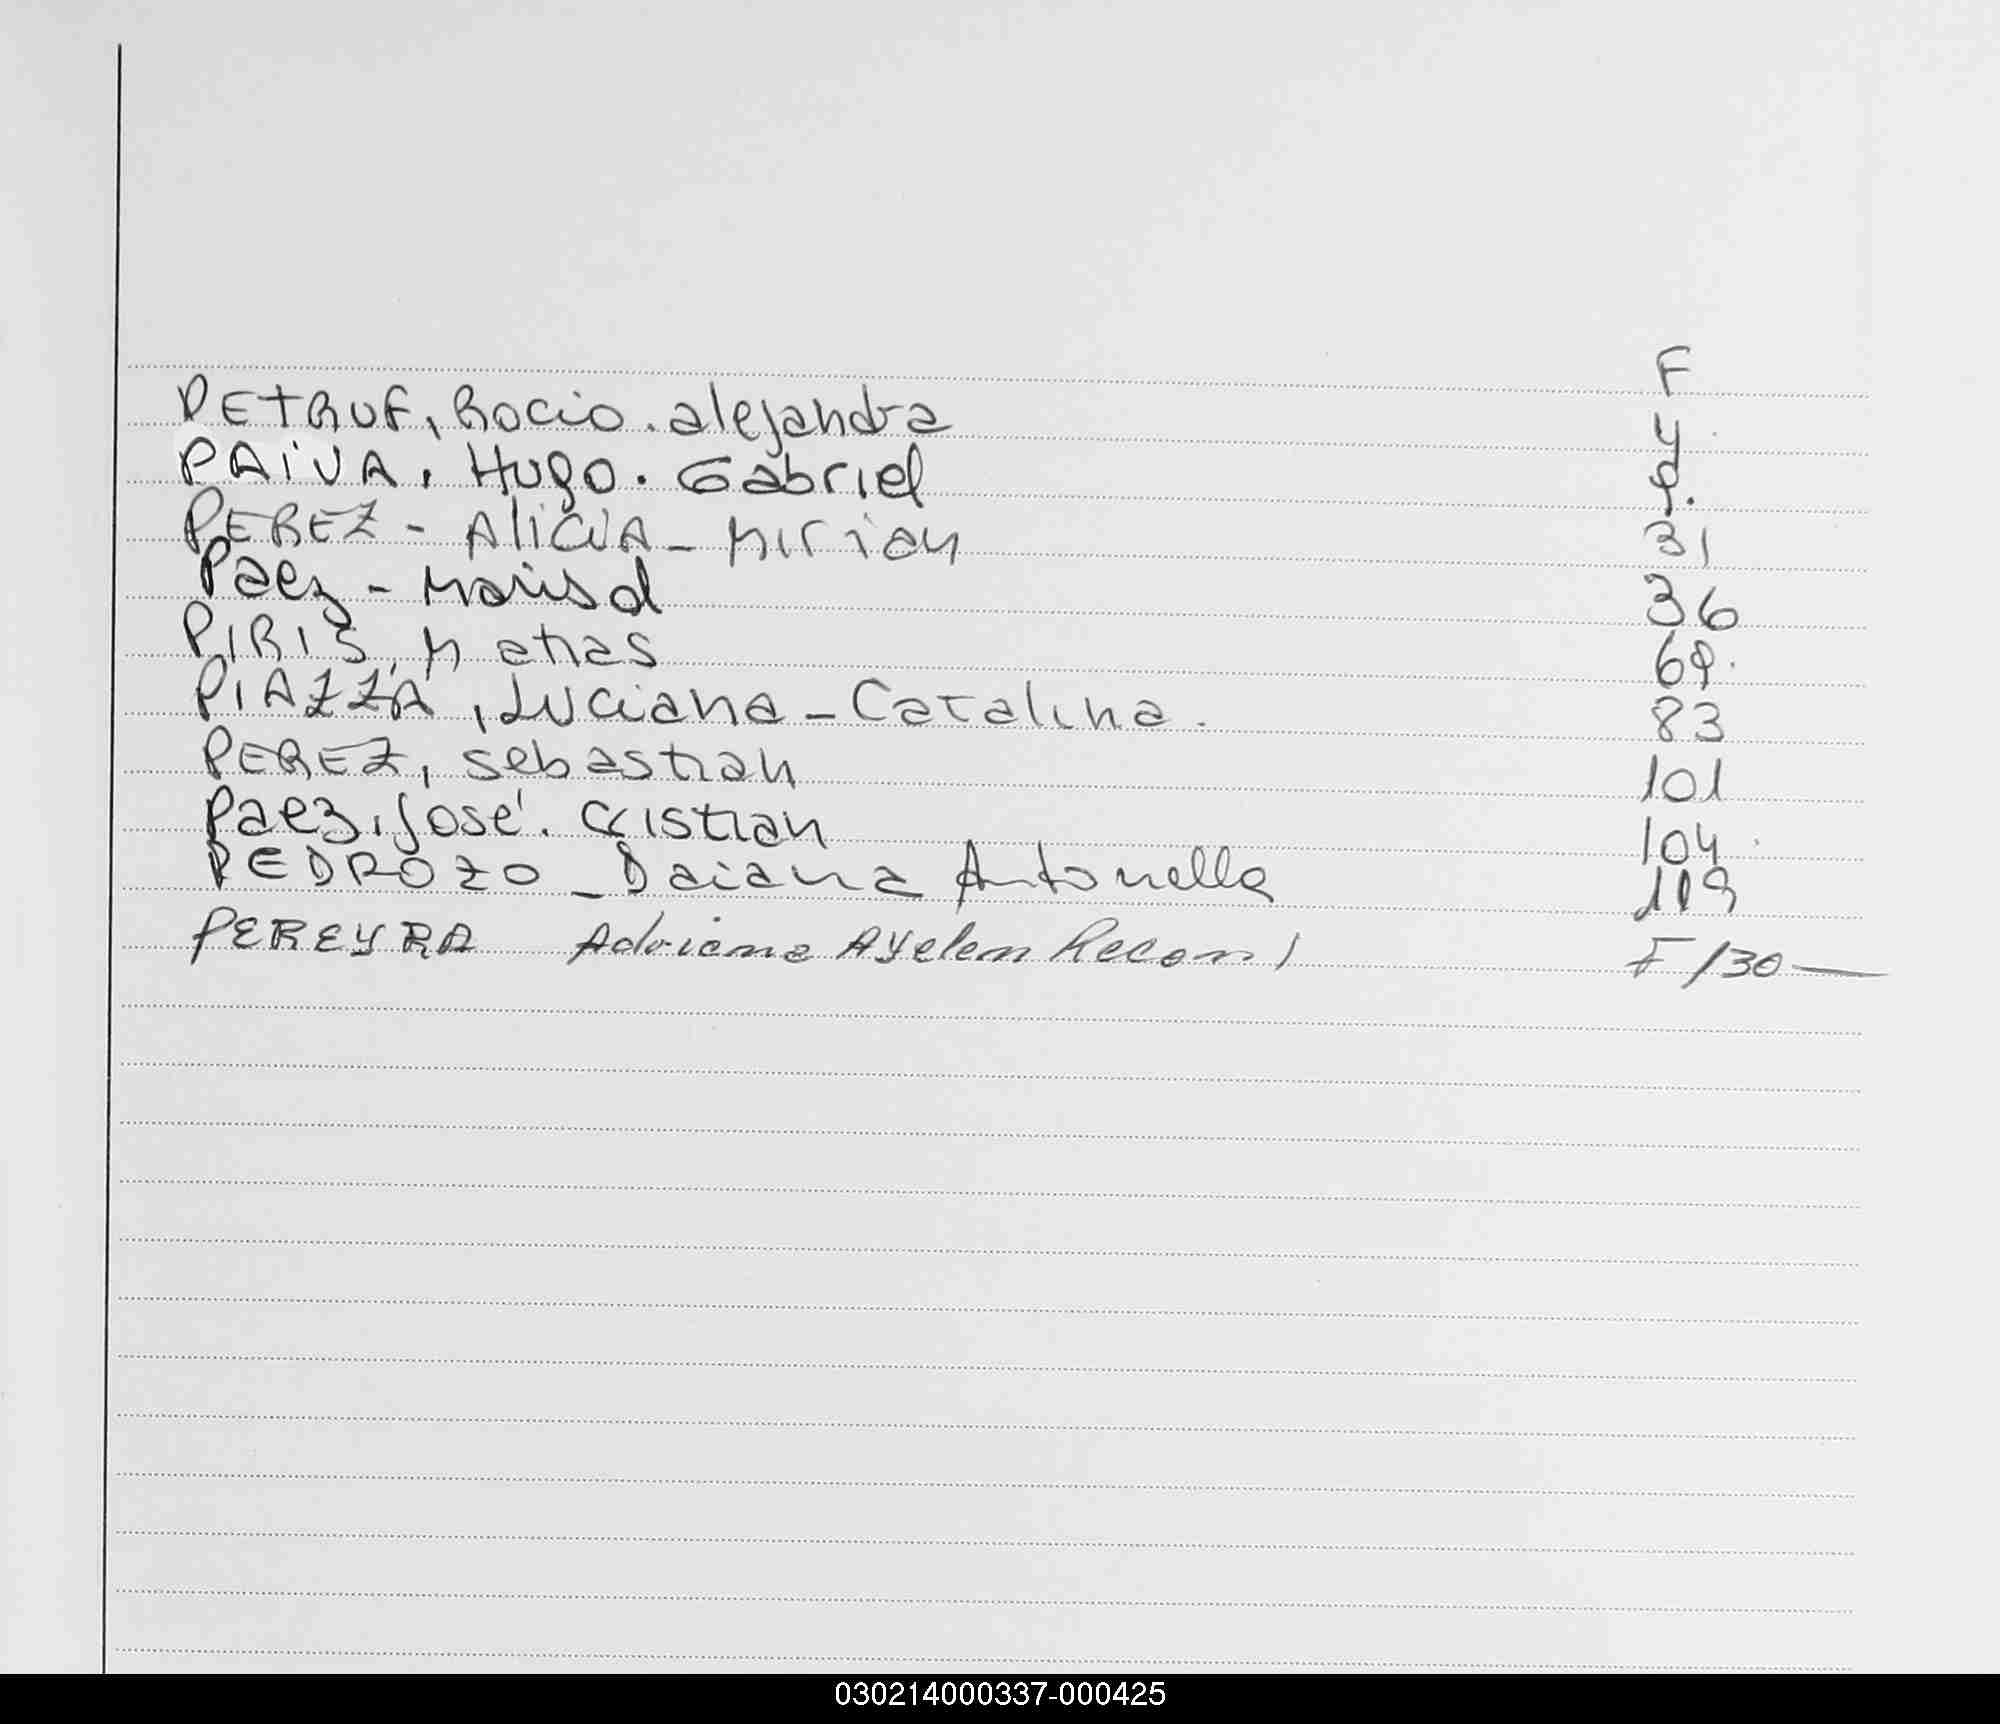 F
PETRUF, Rocio. alejandra 4
PAIVA. Hugo. Gabriel 9.
PEREZ - Alicia - Mirian 31
Paez - Marisol 36
PIRIS, Matias 69.
PIAZZA, Luciana - Catalina. 83
PEREZ, sebastian 101
Paez, José. Cristian 104
PEDROZO - Daiana Antonella 119
PEREYRA Adriana Ayelen F 130
030214000337-000425